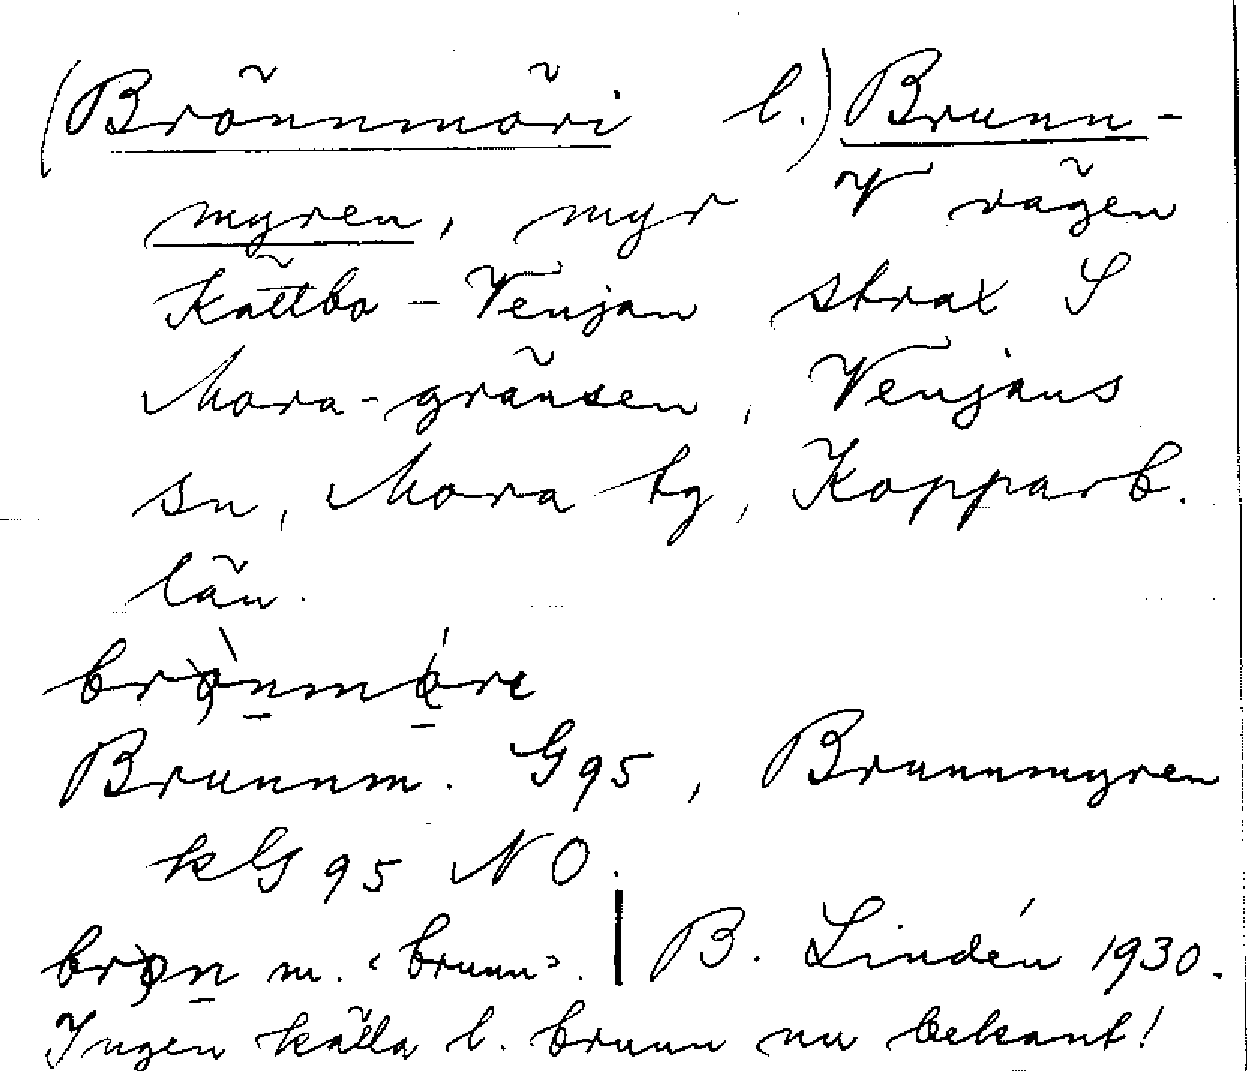 (Brönnmöri l.) Brunn-
myren, myr V vägen
Kättbo - Venjan strax S
Mora-gränsen, Venjans
sn, Mora tg, Kopparb.
län.
Brunnm. G95, Brunnmyren
kG95 NO.
m. "brunn". | B. Lindén 1930.
Ingen källa l. brunn nu bekant!